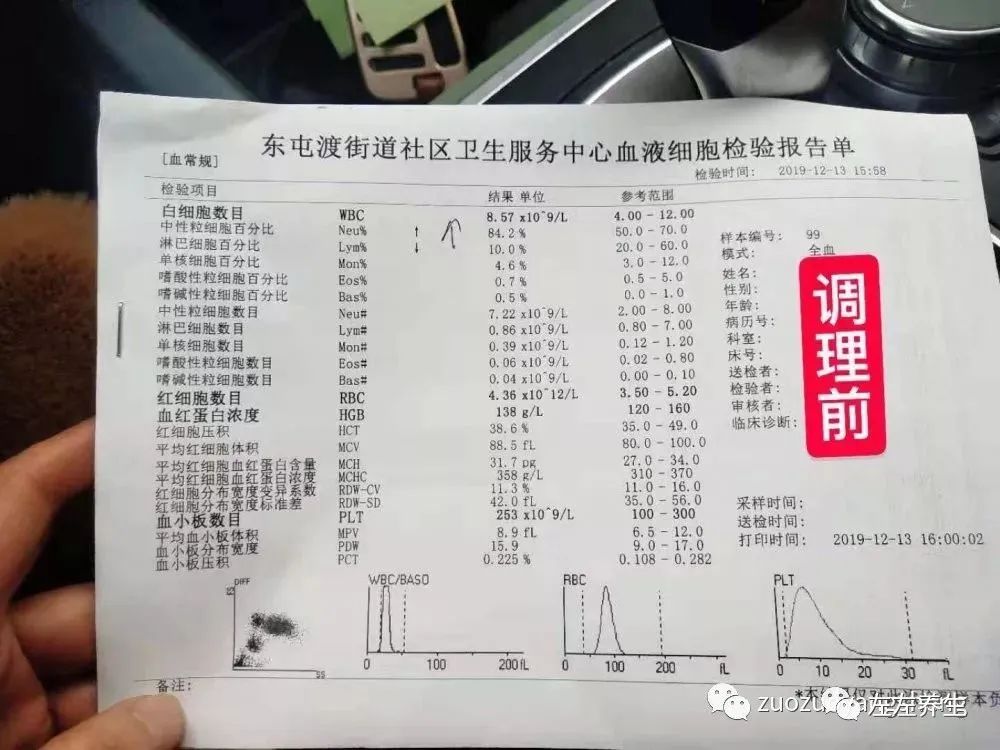 东屯渡街道社区卫生服务中心血液细胞检验报告单
[血常规]
检验时间: 2019-12-13 15:58
检验项目 结果 单位 参考范围
白细胞数目 WBC 8.57 x10^9/L 4.00 - 12.00
中性粒细胞百分比 Neu% ↑ 84.2 % 50.0 - 70.0
淋巴细胞百分比 Lym% ↓ 10.0 % 20.0 - 60.0
单核细胞百分比 Mon% 4.6 % 3.0 - 12.0
嗜酸性粒细胞百分比 Eos% 0.7 % 0.5 - 5.0
嗜碱性粒细胞百分比 Bas% 0.5 % 0.0 - 1.0
中性粒细胞数目 Neu# 7.22 x10^9/L 2.00 - 8.00
淋巴细胞数目 Lym# 0.86 x10^9/L 0.80 - 7.00
单核细胞数目 Mon# 0.39 x10^9/L 0.12 - 1.20
嗜酸性粒细胞数目 Eos# 0.06 x10^9/L 0.02 - 0.80
嗜碱性粒细胞数目 Bas# 0.04 x10^9/L 0.00 - 0.10
红细胞数目 RBC 4.36 x10^12/L 3.50 - 5.20
血红蛋白浓度 HGB 138 g/L 120 - 160
红细胞压积 HCT 38.6 % 35.0 - 49.0
平均红细胞体积 MCV 88.5 fL 80.0 - 100.0
平均红细胞血红蛋白含量 MCH 31.7 pg 27.0 - 34.0
平均红细胞血红蛋白浓度 MCHC 358 g/L 310 - 370
红细胞分布宽度变异系数 RDW-CV 11.3 % 11.0 - 16.0
红细胞分布宽度标准差 RDW-SD 42.0 fL 35.0 - 56.0
血小板数目 PLT 253 x10^9/L 100 - 300
平均血小板体积 MPV 8.9 fL 6.5 - 12.0
血小板分布宽度 PDW 15.9 9.0 - 17.0
血小板压积 PCT 0.225 % 0.108 - 0.282
样本编号: 99
模式: 全血
姓名:
性别:
年龄:
病历号:
科室:
床号:
送检者:
检验者:
审核者:
临床诊断:
调理前
采样时间:
送检时间:
打印时间: 2019-12-13 16:00:02
DIFF
SS
WBC/BASO
0 100 200 fL
RBC
0 100 200 fL
PLT
0 10 20 30 fL
备注:
左左养生